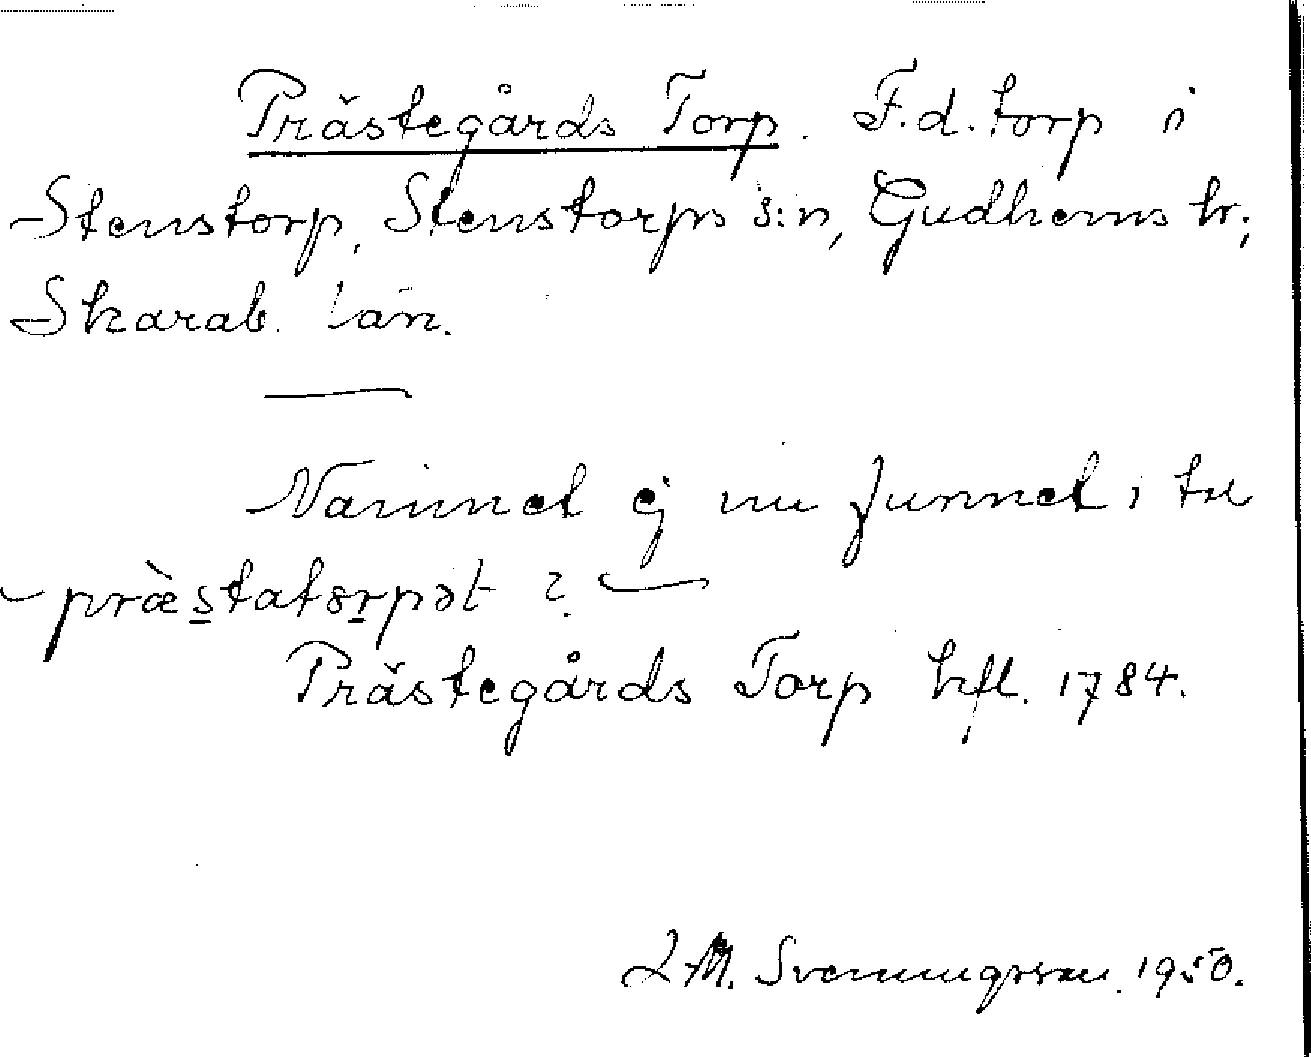 Prästegårds Torp. F.d. torp i
Stenstorp, Stenstorps s:n, Gudhems hr;
Skarab. län.
Namnet ej nu funnet i
præstatorpət ?
Prästegårds Torp hfl. 1784.
L.M. Svenungsson. 1950.